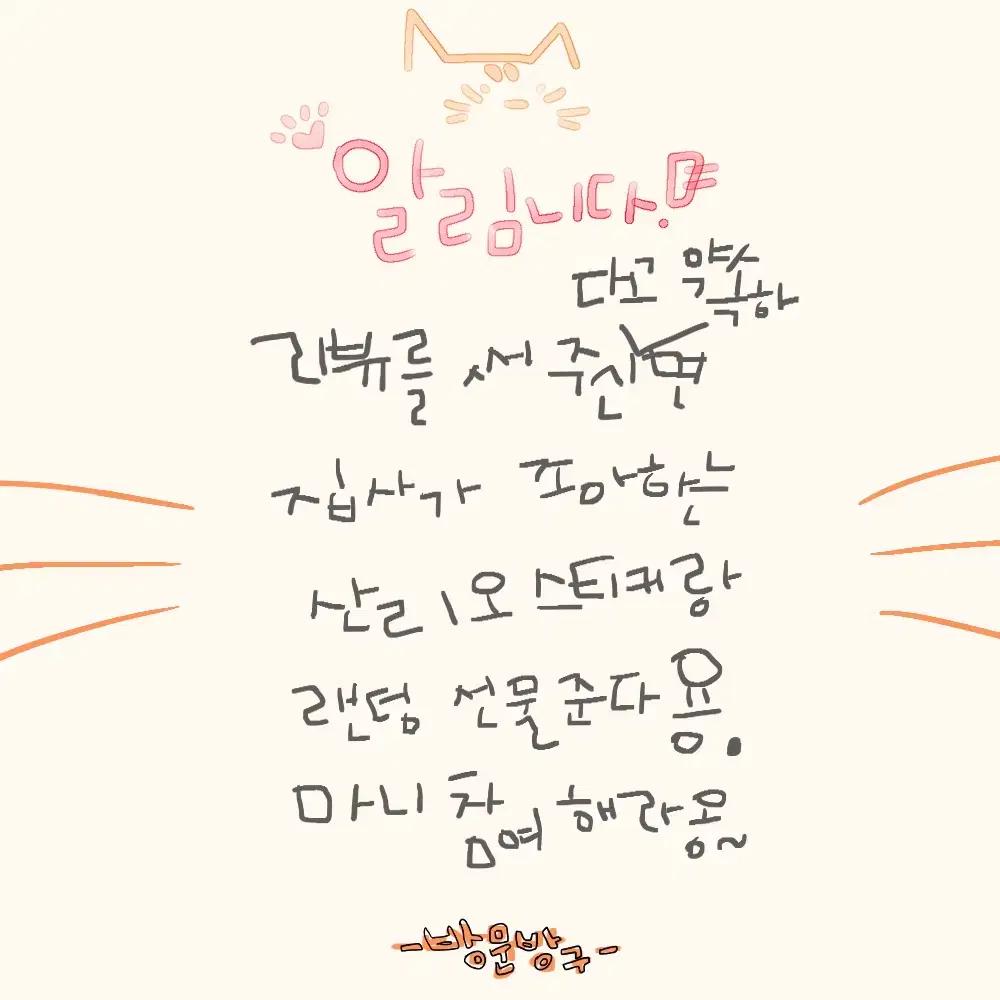 알림니다!
다고 약속하
리뷰를 써 주신면
집사가 조아하는
산리오 스티커랑
랜덤 선물준다용.
마니 참여해라용~
-방문방구-